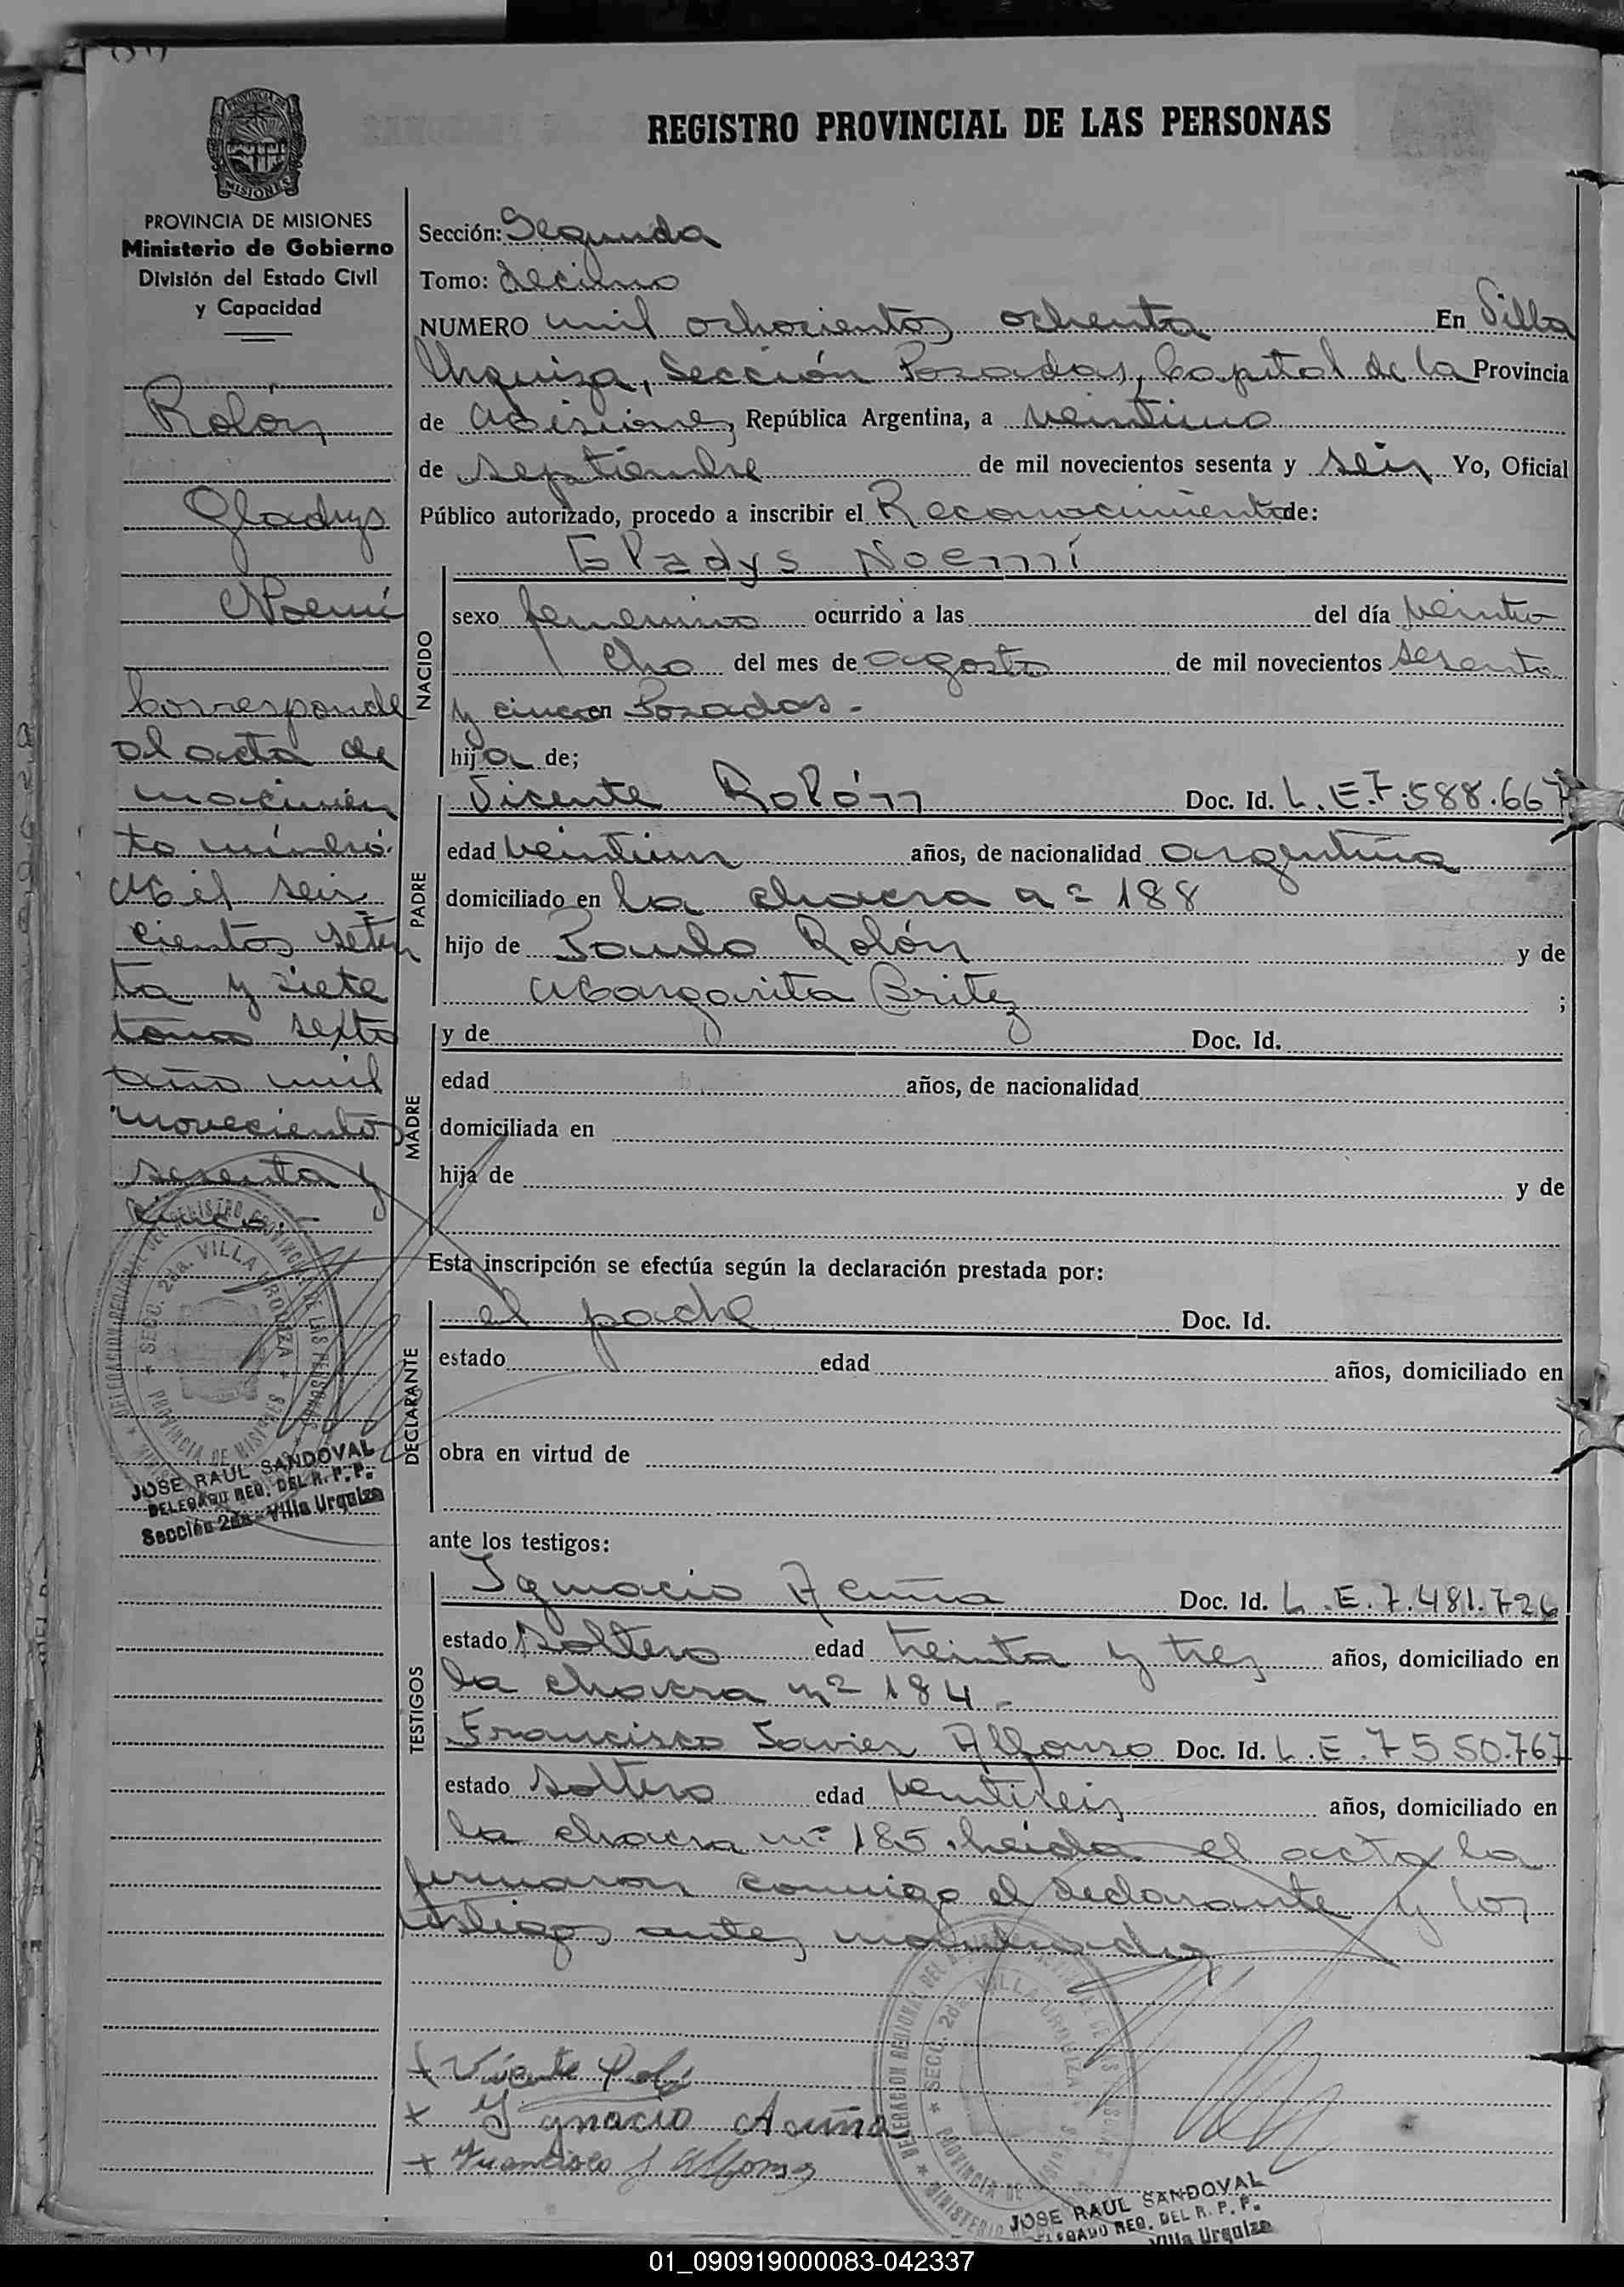 REGISTRO PROVINCIAL DE LAS PERSONAS
PROVINCIA DE
MISIONES
PROVINCIA DE MISIONES
Ministerio de Gobierno
División del Estado Civil
y Capacidad
Rolón
Gladys
Noemí
Corresponde
al acta de
nacimien
to número
Mil seis
cientos seten
ta y siete
tomo sexto
año mil
novecientos
sesenta y
cinco.-
SECC. 2da. VILLA URQUIZA
PROVINCIA DE MISIONES
JOSE RAUL SANDOVAL
DELEGADO REG. DEL R. P. P.
Sección 2da - Villa Urquiza
Sección: Segunda
Tomo: décimo
NUMERO mil ochocientos ochenta En Villa
Urquiza, Sección Posadas, Capital de la Provincia
de Misiones, República Argentina, a veintiuno
de septiembre de mil novecientos sesenta y seis Yo, Oficial
Público autorizado, procedo a inscribir el Reconocimiento de:
NACIDO
Gladys Noemí
sexo femenino ocurrido a las del día veintio
cho del mes de agosto de mil novecientos sesenta
y cinco en Posadas.-
hija de;
PADRE
Vicente Rolón Doc. Id. L.E.7.588.667
edad veintiun años, de nacionalidad argentina
domiciliado en la chacra nº 188
hijo de Paulo Rolón y de
Margarita Britez ;
MADRE
y de Doc. Id.
edad años, de nacionalidad
domiciliada en
hija de y de
Esta inscripción se efectúa según la declaración prestada por:
DECLARANTE
el padre Doc. Id.
estado edad años, domiciliado en
obra en virtud de
ante los testigos:
TESTIGOS
Ignacio Acuña Doc. Id. L.E.7.481.726
estado soltero edad treinta y tres años, domiciliado en
la chacra nº 184.-
Francisco Javier Alfonso Doc. Id. L.E.7550.767
estado soltero edad veintiseis años, domiciliado en
la chacra nº 185. Leida el acta la
firmaron conmigo el declarante y los
testigos antes
+ Vicente Rolón
+ Ignacio Acuña
+ Francisco J Alfonso
SECC. 2da. VILLA URQUIZA
PROVINCIA DE
JOSE RAUL SANDOVAL
DELEGADO REG. DEL R. P. P.
Villa Urquiza
01_090919000083-042337